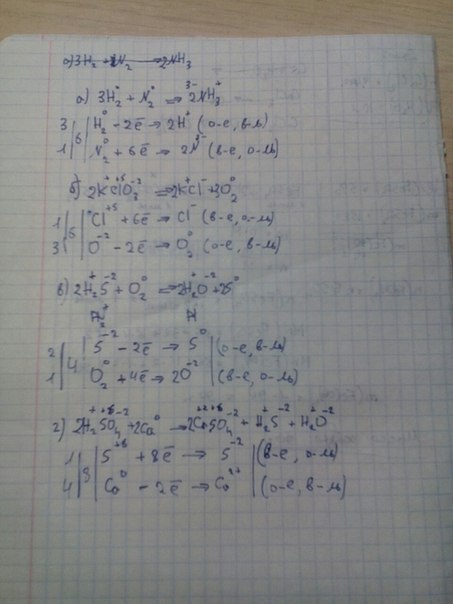 а) 3H₂ + N₂ → 2NH₃
а) 3H₂⁰ + N₂⁰ ⇒ 2N³⁻H₃⁺
3 | 6 | H₂⁰ − 2ē → 2H⁺ (о-е, в-ль)
1 | N₂⁰ + 6ē → 2N³⁻ (в-е, о-ль)
б) 2K⁺Cl⁺⁵O₃⁻² ⇒ 2K⁺Cl⁻ + 3O₂⁰
1 | 6 | Cl⁺⁵ + 6ē → Cl⁻ (в-е, о-ль)
3 | O⁻² − 2ē → O₂⁰ (о-е, в-ль)
в) 2H₂⁺S⁻² + O₂⁰ ⇒ 2H₂⁺O⁻² + 2S⁰
2 | 4 | S⁻² − 2ē → S⁰ (о-е, в-ль)
1 | O₂⁰ + 4ē → 2O⁻² (в-е, о-ль)
г) 2H₂⁺S⁺⁶O₄⁻² + 2Ca⁰ → 2Ca⁺²S⁺⁶O₄⁻² + H₂⁺S⁻² + H₂⁺O⁻²
1 | 8 | S⁺⁶ + 8ē → S⁻² (в-е, о-ль)
4 | Ca⁰ − 2ē → Ca²⁺ (о-е, в-ль)